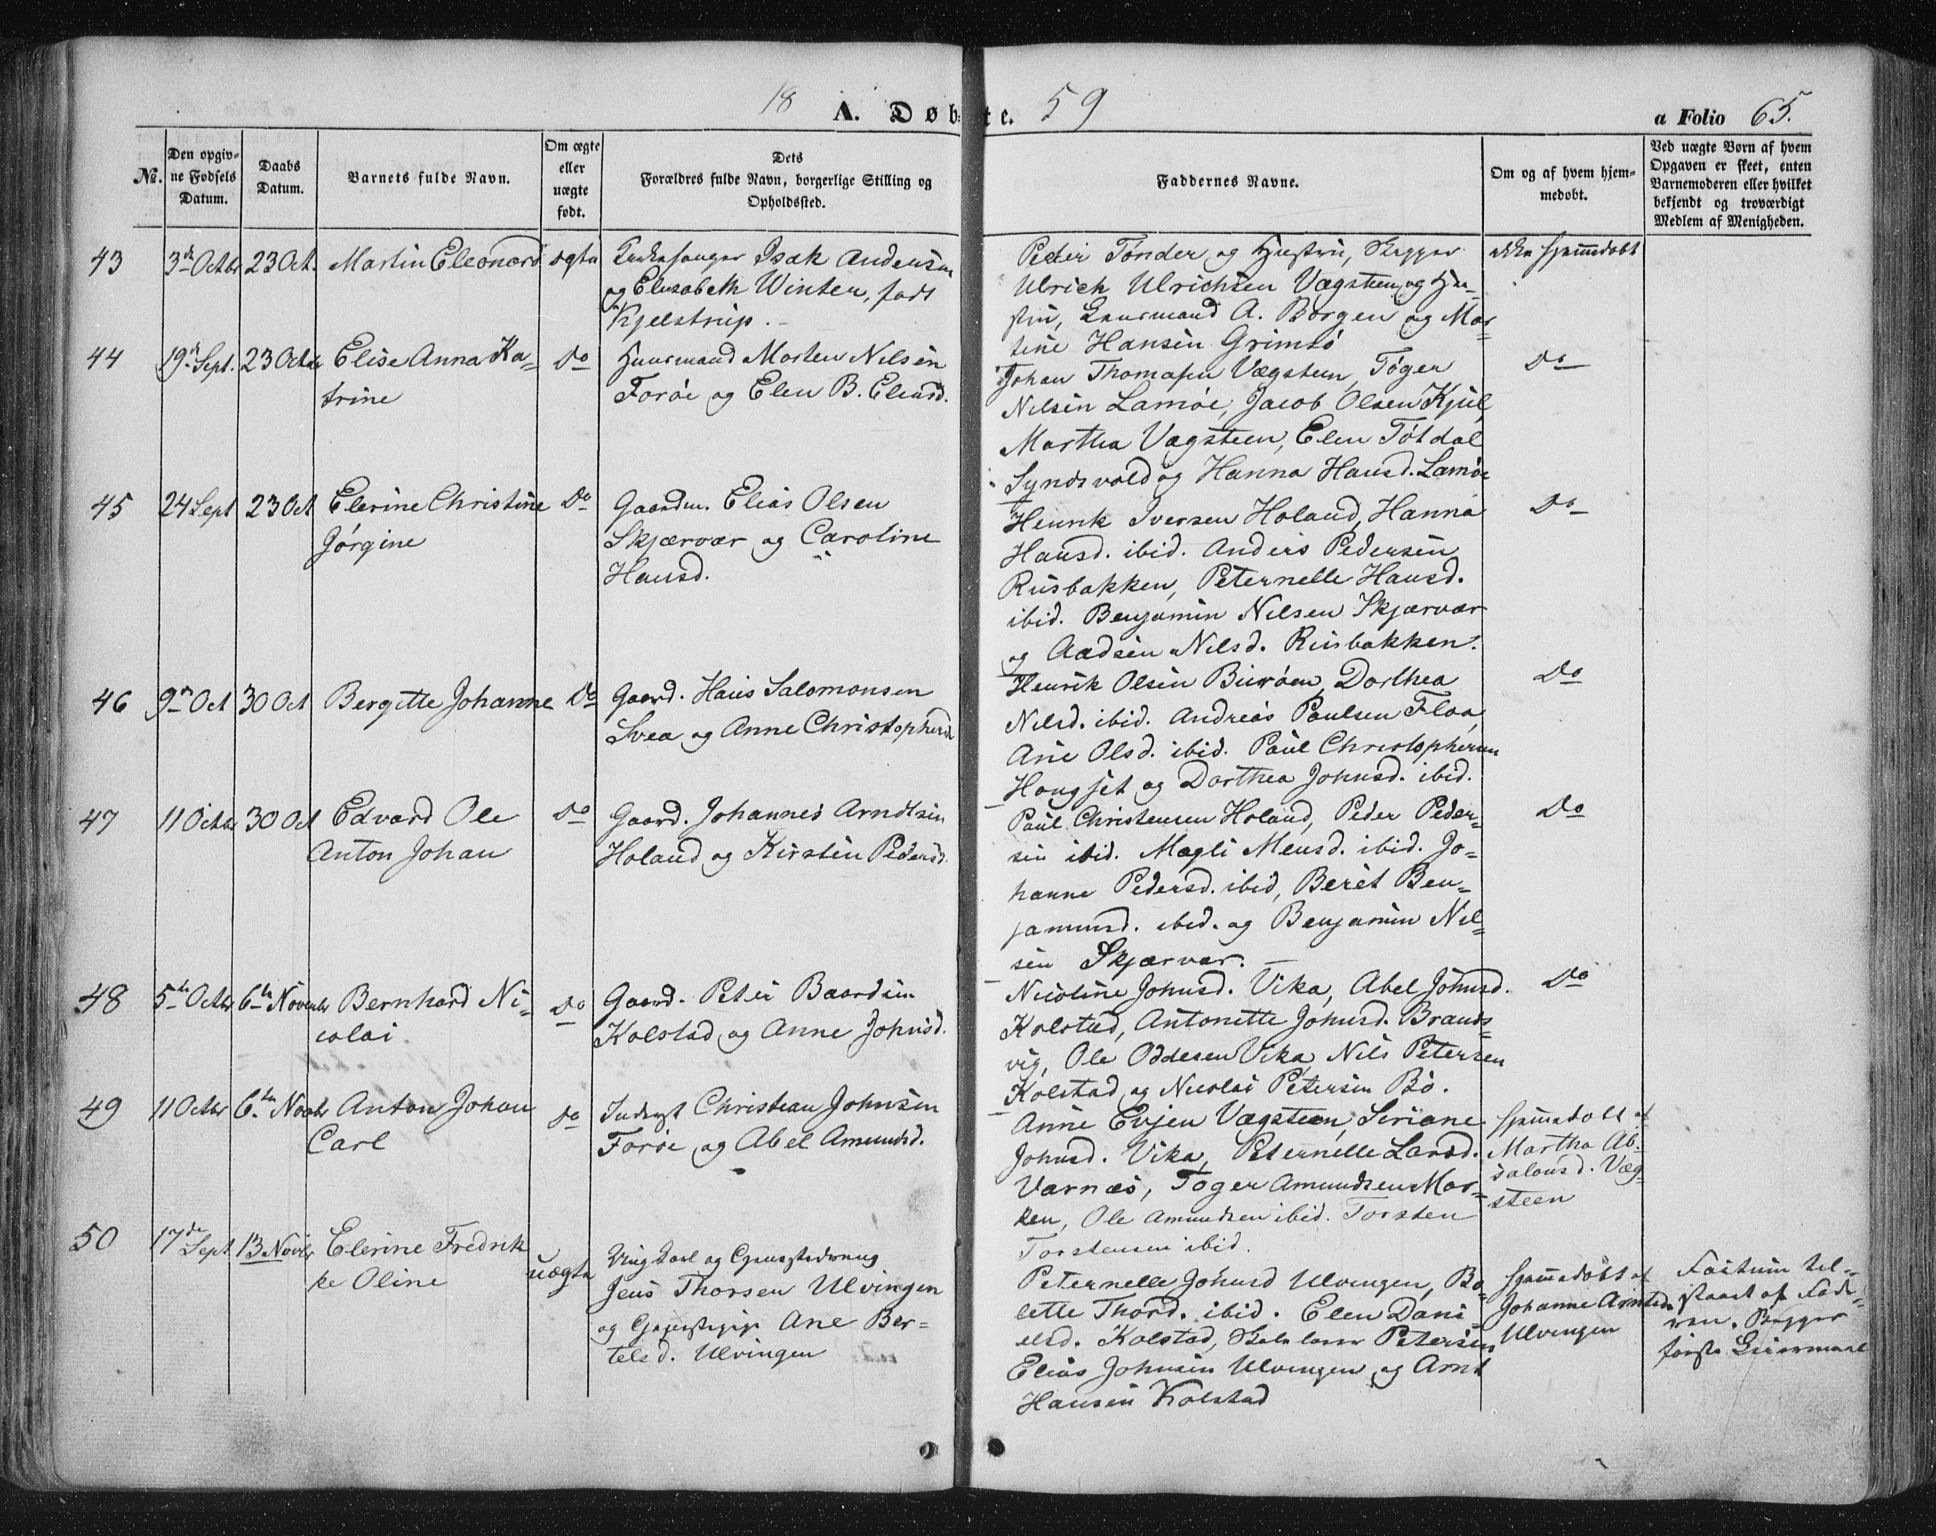 18 A. Døbte. 59 a Folio 65.
No.
Den opgiv-
ne Fødsels
Datum.
Daabs
Datum.
Barnets fulde Navn.
Om ægte
eller
uægte
født.
Dets
Forældres fulde Navn, borgerlige Stilling og
Opholdssted.
Faddernes Navne.
Om og af hvem hjem-
medøbt.
Ved uægte Børn af hvem
Opgaven er skeet, enten
Barnemoderen eller hvilket
bekjendt og troværdigt
Medlem af Menigheden.
43 3de Octbr 23 Oct. Martin Eleonard ægte
Kirkesanger Isak Andersen
og Elisabeth Winter, født
Kjelstrup.
Peder Tønder og Hustru, Skipper
Ulrich Ulrichsen Vægsteen og Hu-
stru, Gaardmand A. Borgen og Mar-
tine Hansen Grimsø
ikke hjemmedøbt
44 19de Sept. 23 Octbr Elise Anna Ka-
trine
Do
Huusmand Morten Nilsen
Forøe og Elen B. Eliasd.
Johan Thomasen Vægsteen, Tøger
Nilsen Lamøe, Jacob Olsen Kjul,
Martha Vægsteen, Elen Tøtdal
Syndsvold og Hanna Hansd. Lamøe
Do
45 24 Sept 23 Oct Elerine Christine
Jørgine
Do
Gaardm. Elias Olsen
Skjærvær og Caroline
Hansd.
Henrik Iversen Holand, Hanna
Hansd. ibid. Anders Pedersen
Risbakken, Peternelle Hansd.
ibid. Benjamin Nilsen Skjærvær
og Aadsen Nilsd. Risbakken.
Do
46 9de Oct 30 Oct Bergitte Johanne Do
Gaard. Hans Salomonsen
Svea og Anne Christophersd
Henrik Olsen Buøen, Dorthea
Nilsd. ibid. Andreas Paulsen Floa,
Ane Olsd. ibid. Paul Christophersen
Hongset og Dorthea Johnsd. ibid.
Do
47 11 Octbr 30 Oct Edvard Ole
Anton Johan
Do
Gaard. Johannes Arndtsen
Holand og Kirsten Pedersd.
Paul Christensen Holand, Peder Peder-
sen ibid. Magli Mensd. ibid. Jo-
hanne Pedersd. ibid, Beret Ben-
jaminsd. ibid. og Benjamin Nil-
sen Skjærvær.
Do
48 5te Octbr 6te Novembr Bernhard Ni-
colai
Do
Gaard. Peter Baardsen
Kolstad og Anne Johnsd.
Nicoline Johnsd. Vika, Abel Johnsd.
Kolstad, Antonette Johnsd. Brands-
vig, Ole Oddesen Vika, Nils Petersen
Kolstad og Nicolai Petersen Bø.
Do
49 11 Octbr 6te Novbr Anton Johan
Carl
Do
Inderst Christian Johnsen
Forøe og Abel Amundsd.
Anne Evjen Vægsteen, Seriane
Johnsd. Vika, Peternelle Larsd.
Varnæs, Tøger Amundsen Mar-
ken, Ole Amundsen ibid. Torsten
Torstensen ibid.
hjemmedøbt af
Martha Ab-
salonsd. Væg-
steen
50 17de Sept 13 Novbr Elerine Fredrik-
ke Oline
uægte
Ungkarl og Gaardmandssøn
Jens Thorsen Ulvingen
og Ane Ber-
telsd. Ulvingen
Peternelle Johnsd Ulvingen, Bo-
lette Thord. ibid. Elen Dani-
elsd. Kolstad, Petersen
Elias Johnsen Ulvingen og Arnt
Hansen Kolstad
hjemmedøbt af
Johanne Arntsd.
Ulvingen
tel-
staaet af Fade-
ren. Begges
første Leiermaal